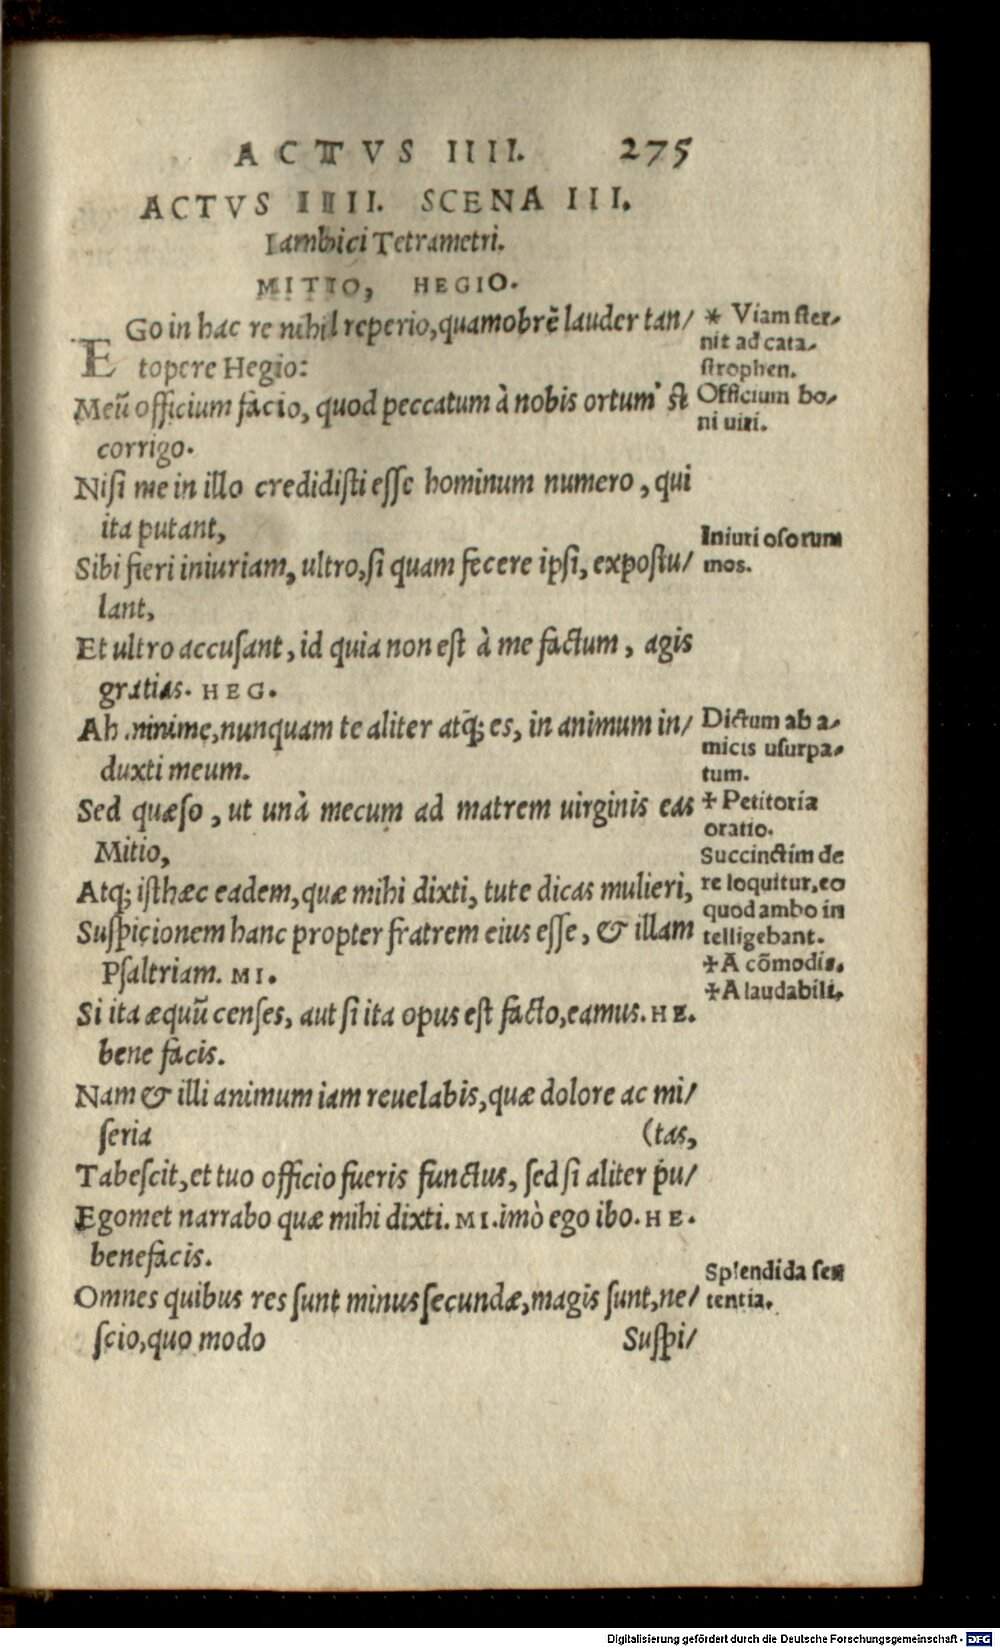 ACTVS IIII. 275
ACTVS IIII. SCENA III.
Iambici Tetrametri.
MITIO, HEGIO.
EGo in hac re nihil reperio, quamobrẽ lauder tan/
topere Hegio:
Meũ officium facio, quod peccatum à nobis ortum' st
corrigo.
Nisi me in illo credidisti esse hominum numero, qui
ita putant,
Sibi fieri iniuriam, ultro, si quam fecere ipsi, expostu/
lant,
Et ultro accusant, id quia non est à me factum, agis
gratias. HEG.
Ah minime, nunquam te aliter atq; es, in animum in/
duxti meum.
Sed quæso, ut unà mecum ad matrem uirginis eas
Mitio,
Atq; isthæc eadem, quæ mihi dixti, tute dicas mulieri,
Suspicionem hanc propter fratrem eius esse, & illam
Psaltriam. MI.
Si ita æquũ censes, aut si ita opus est facto, eamus. HE.
bene facis.
Nam & illi animum iam reuelabis, quæ dolore ac mi/
seria (tas,
Tabescit, et tuo officio fueris functus, sed si aliter pu/
Egomet narrabo quæ mihi dixti. MI. imò ego ibo. HE.
benefacis.
Omnes quibus res sunt minus secundæ, magis sunt, ne/
scio, quo modo Suspi/
* Viam ster-
nit ad cata-
strophen.
Officium bo-
ni uiri.
Iniuriosorum
mos.
Dictum ab a-
micis usurpa-
tum.
+ Petitoria
oratio.
Succinctim de
re loquitur, eo
quod ambo in
telligebant.
+ A cõmodis.
+ A laudabili,
Splendida sen
tentia.
Digitalisierung gefördert durch die Deutsche Forschungsgemeinschaft - DFG